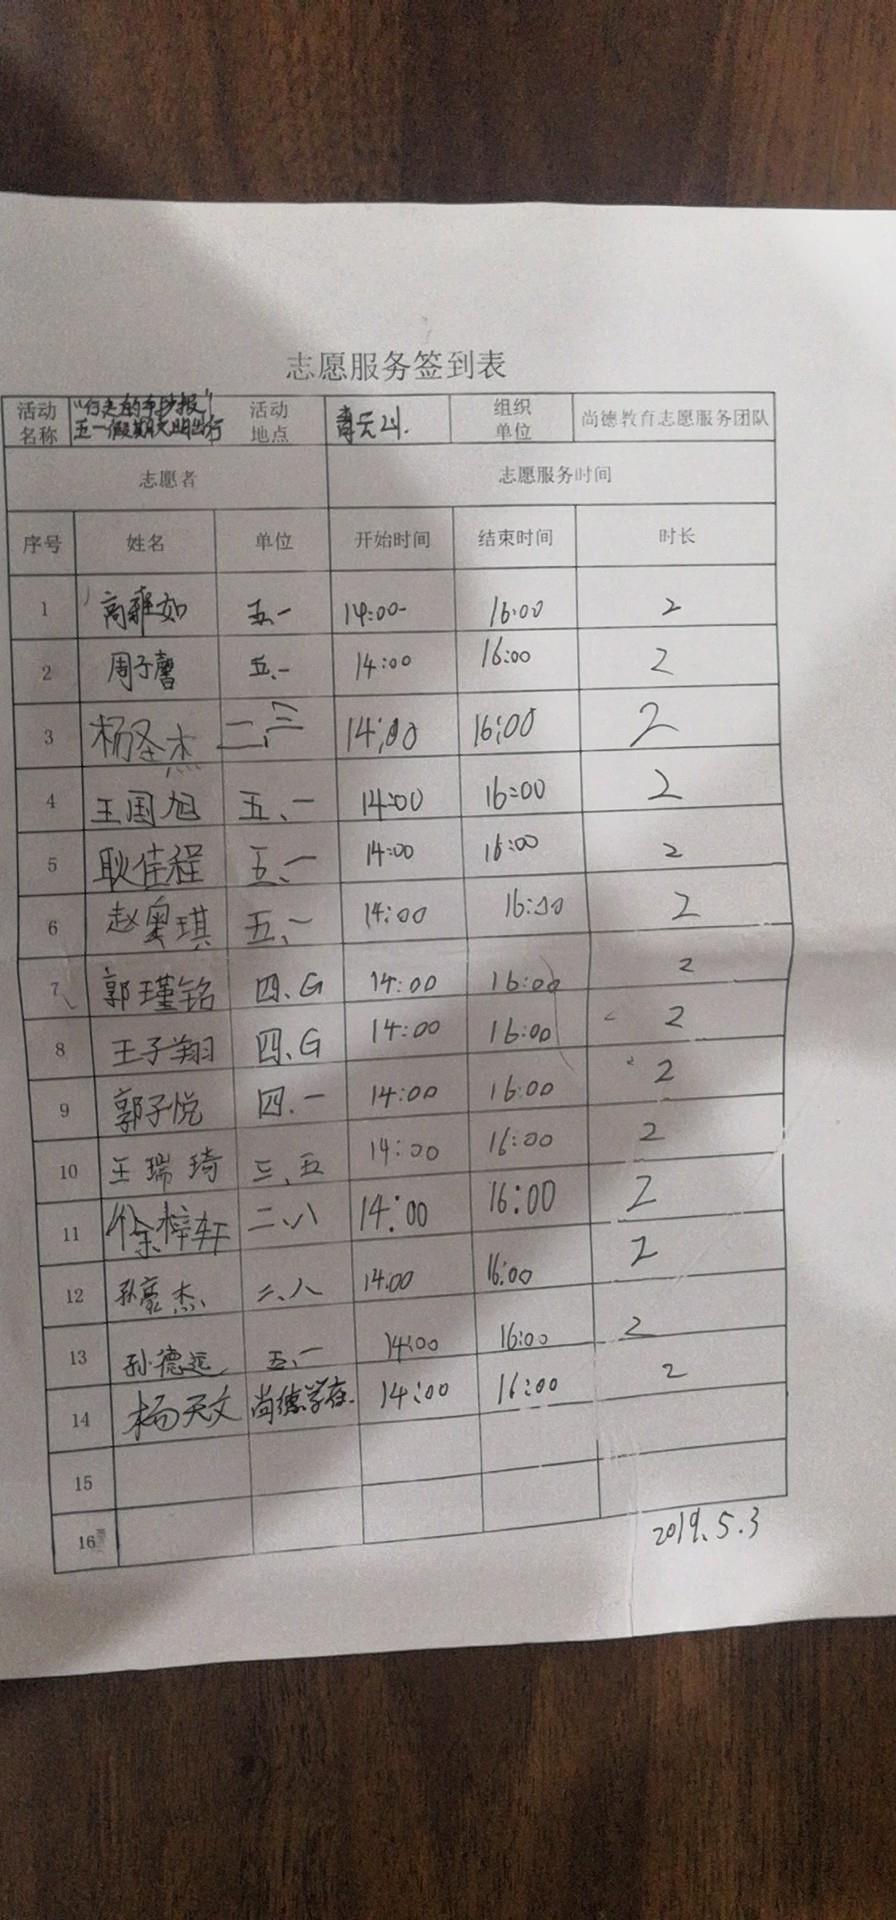 志愿服务签到表
活动名称 "行走的手抄报" 五一假期文明出行 活动地点 组织单位 尚德教育志愿服务团队
志愿者 志愿服务时间
序号 姓名 单位 开始时间 结束时间 时长
1 高雅如 五.一 14:00 16:00 2
2 周子馨 五.一 14:00 16:00 2
3 杨圣杰 二,三 14:00 16:00 2
4 王国旭 五、一 14:00 16:00 2
5 耿佳程 五、一 14:00 16:00 2
6 赵奥琪 五、一 14:00 16:00 2
7 郭瑾铭 四、G 14:00 16:00 2
8 王子翔 四、G 14:00 16:00 2
9 郭子悦 四.一 14:00 16:00 2
10 王瑞琦 三、五 14:00 16:00 2
11 徐梓轩 二、八 14:00 16:00 2
12 孙豪杰 二、八 14:00 16:00 2
13 孙德远 五、一 14:00 16:00 2
14 杨天文 尚德 14:00 16:00 2
15
16
2019.5.3